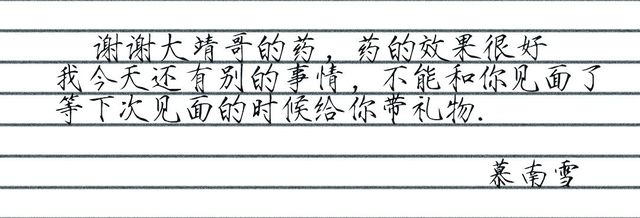 谢谢大靖哥的药，药的效果很好
我今天还有别的事情，不能和你见面了
等下次见面的时候给你带礼物.
慕南雪